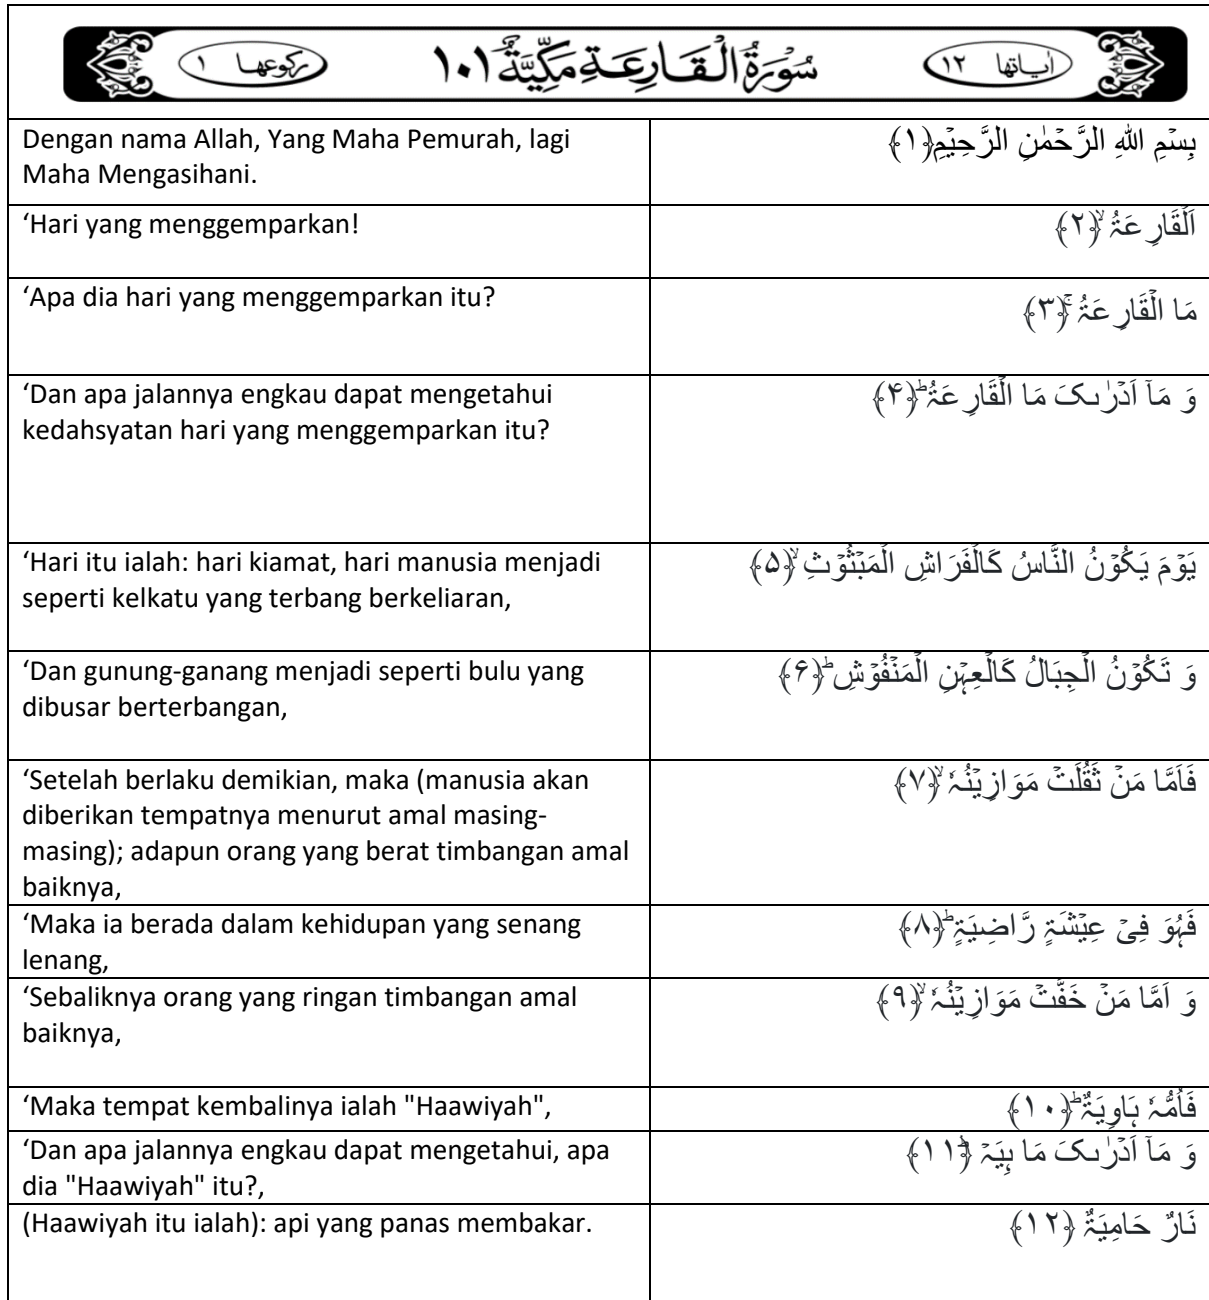 اٰیاتھا ١٢
سُوۡرَۃُ الۡقَارِعَۃِ مَکِّیَّۃٌ ١٠١
رکوعھا ١
Dengan nama Allah, Yang Maha Pemurah, lagi
Maha Mengasihani.
بِسۡمِ اللّٰہِ الرَّحۡمٰنِ الرَّحِیۡمِ﴿۱﴾
‘Hari yang menggemparkan!
اَلۡقَارِعَۃُ ۙ﴿۲﴾
‘Apa dia hari yang menggemparkan itu?
مَا الۡقَارِعَۃُ ۚ﴿۳﴾
‘Dan apa jalannya engkau dapat mengetahui
kedahsyatan hari yang menggemparkan itu?
وَ مَاۤ اَدۡرٰىکَ مَا الۡقَارِعَۃُ ؕ﴿۴﴾
‘Hari itu ialah: hari kiamat, hari manusia menjadi
seperti kelkatu yang terbang berkeliaran,
یَوۡمَ یَکُوۡنُ النَّاسُ کَالۡفَرَاشِ الۡمَبۡثُوۡثِ ۙ﴿۵﴾
‘Dan gunung-ganang menjadi seperti bulu yang
dibusar berterbangan,
وَ تَکُوۡنُ الۡجِبَالُ کَالۡعِہۡنِ الۡمَنۡفُوۡشِ ؕ﴿۶﴾
‘Setelah berlaku demikian, maka (manusia akan
diberikan tempatnya menurut amal masing-
masing); adapun orang yang berat timbangan amal
baiknya,
فَاَمَّا مَنۡ ثَقُلَتۡ مَوَازِیۡنُہٗ ۙ﴿۷﴾
‘Maka ia berada dalam kehidupan yang senang
lenang,
فَہُوَ فِیۡ عِیۡشَۃٍ رَّاضِیَۃٍ ؕ﴿۸﴾
‘Sebaliknya orang yang ringan timbangan amal
baiknya,
وَ اَمَّا مَنۡ خَفَّتۡ مَوَازِیۡنُہٗ ۙ﴿۹﴾
‘Maka tempat kembalinya ialah "Haawiyah",
فَاُمُّہٗ ہَاوِیَۃٌ ؕ﴿۱۰﴾
‘Dan apa jalannya engkau dapat mengetahui, apa
dia "Haawiyah" itu?,
وَ مَاۤ اَدۡرٰىکَ مَا ہِیَہۡ ﴿ؕ۱۱﴾
(Haawiyah itu ialah): api yang panas membakar.
نَارٌ حَامِیَۃٌ ﴿۱۲﴾